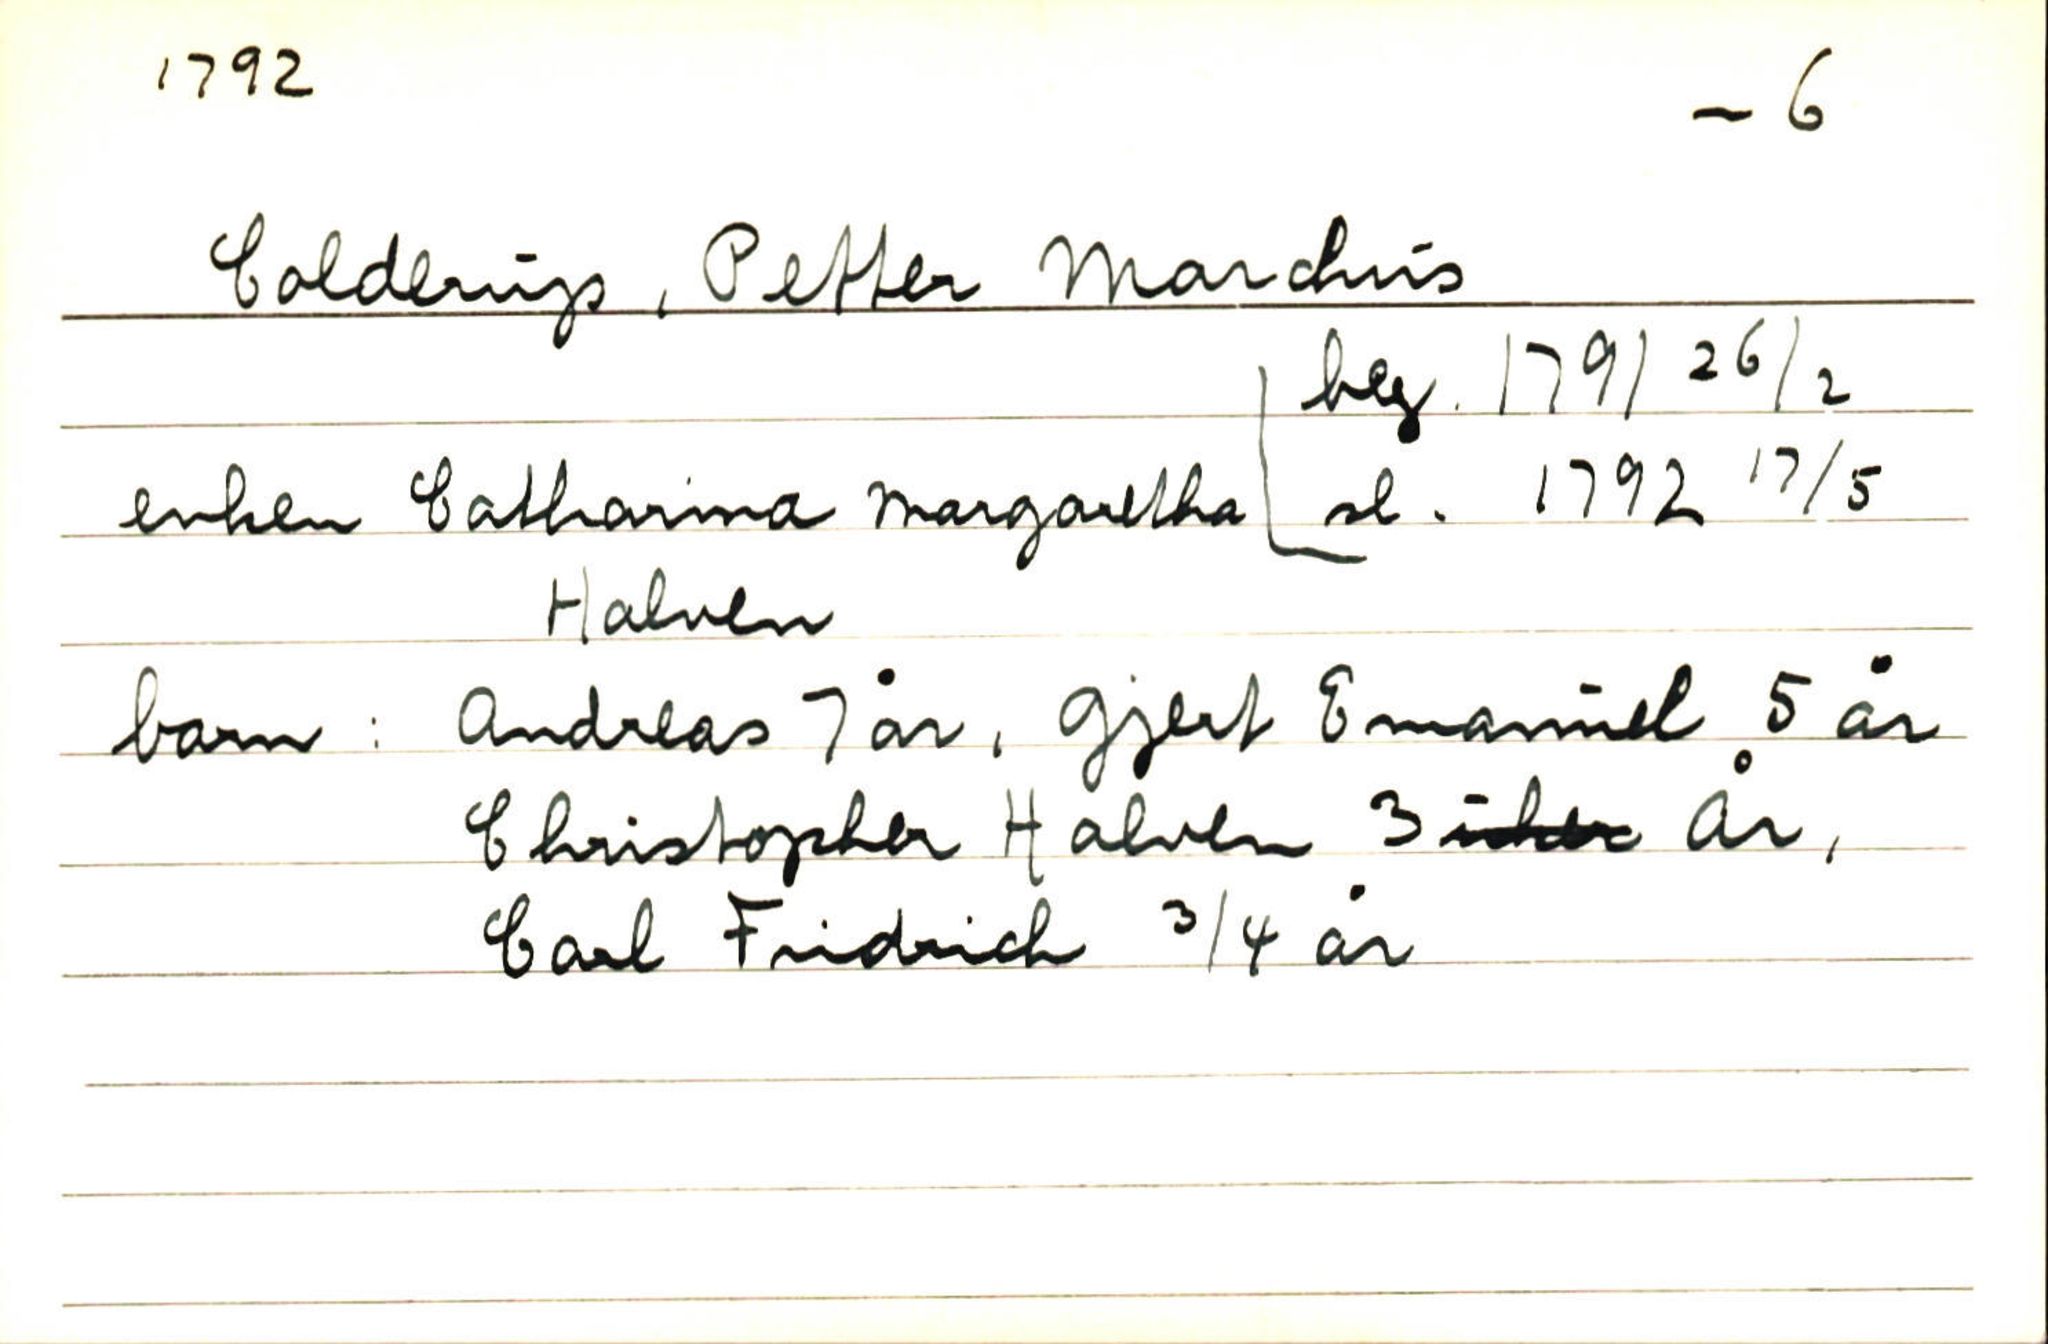 1792 - 6
Colderup, Petter Marchus
beg. 1791 26/2
enken Catharina Margaretha sl. 1792 17/5
Halven
barn : Andreas 7 år, Gjert Emanuel 5 år
Christopher Halven 3 uker År,
Carl Fridrich 3/4 år